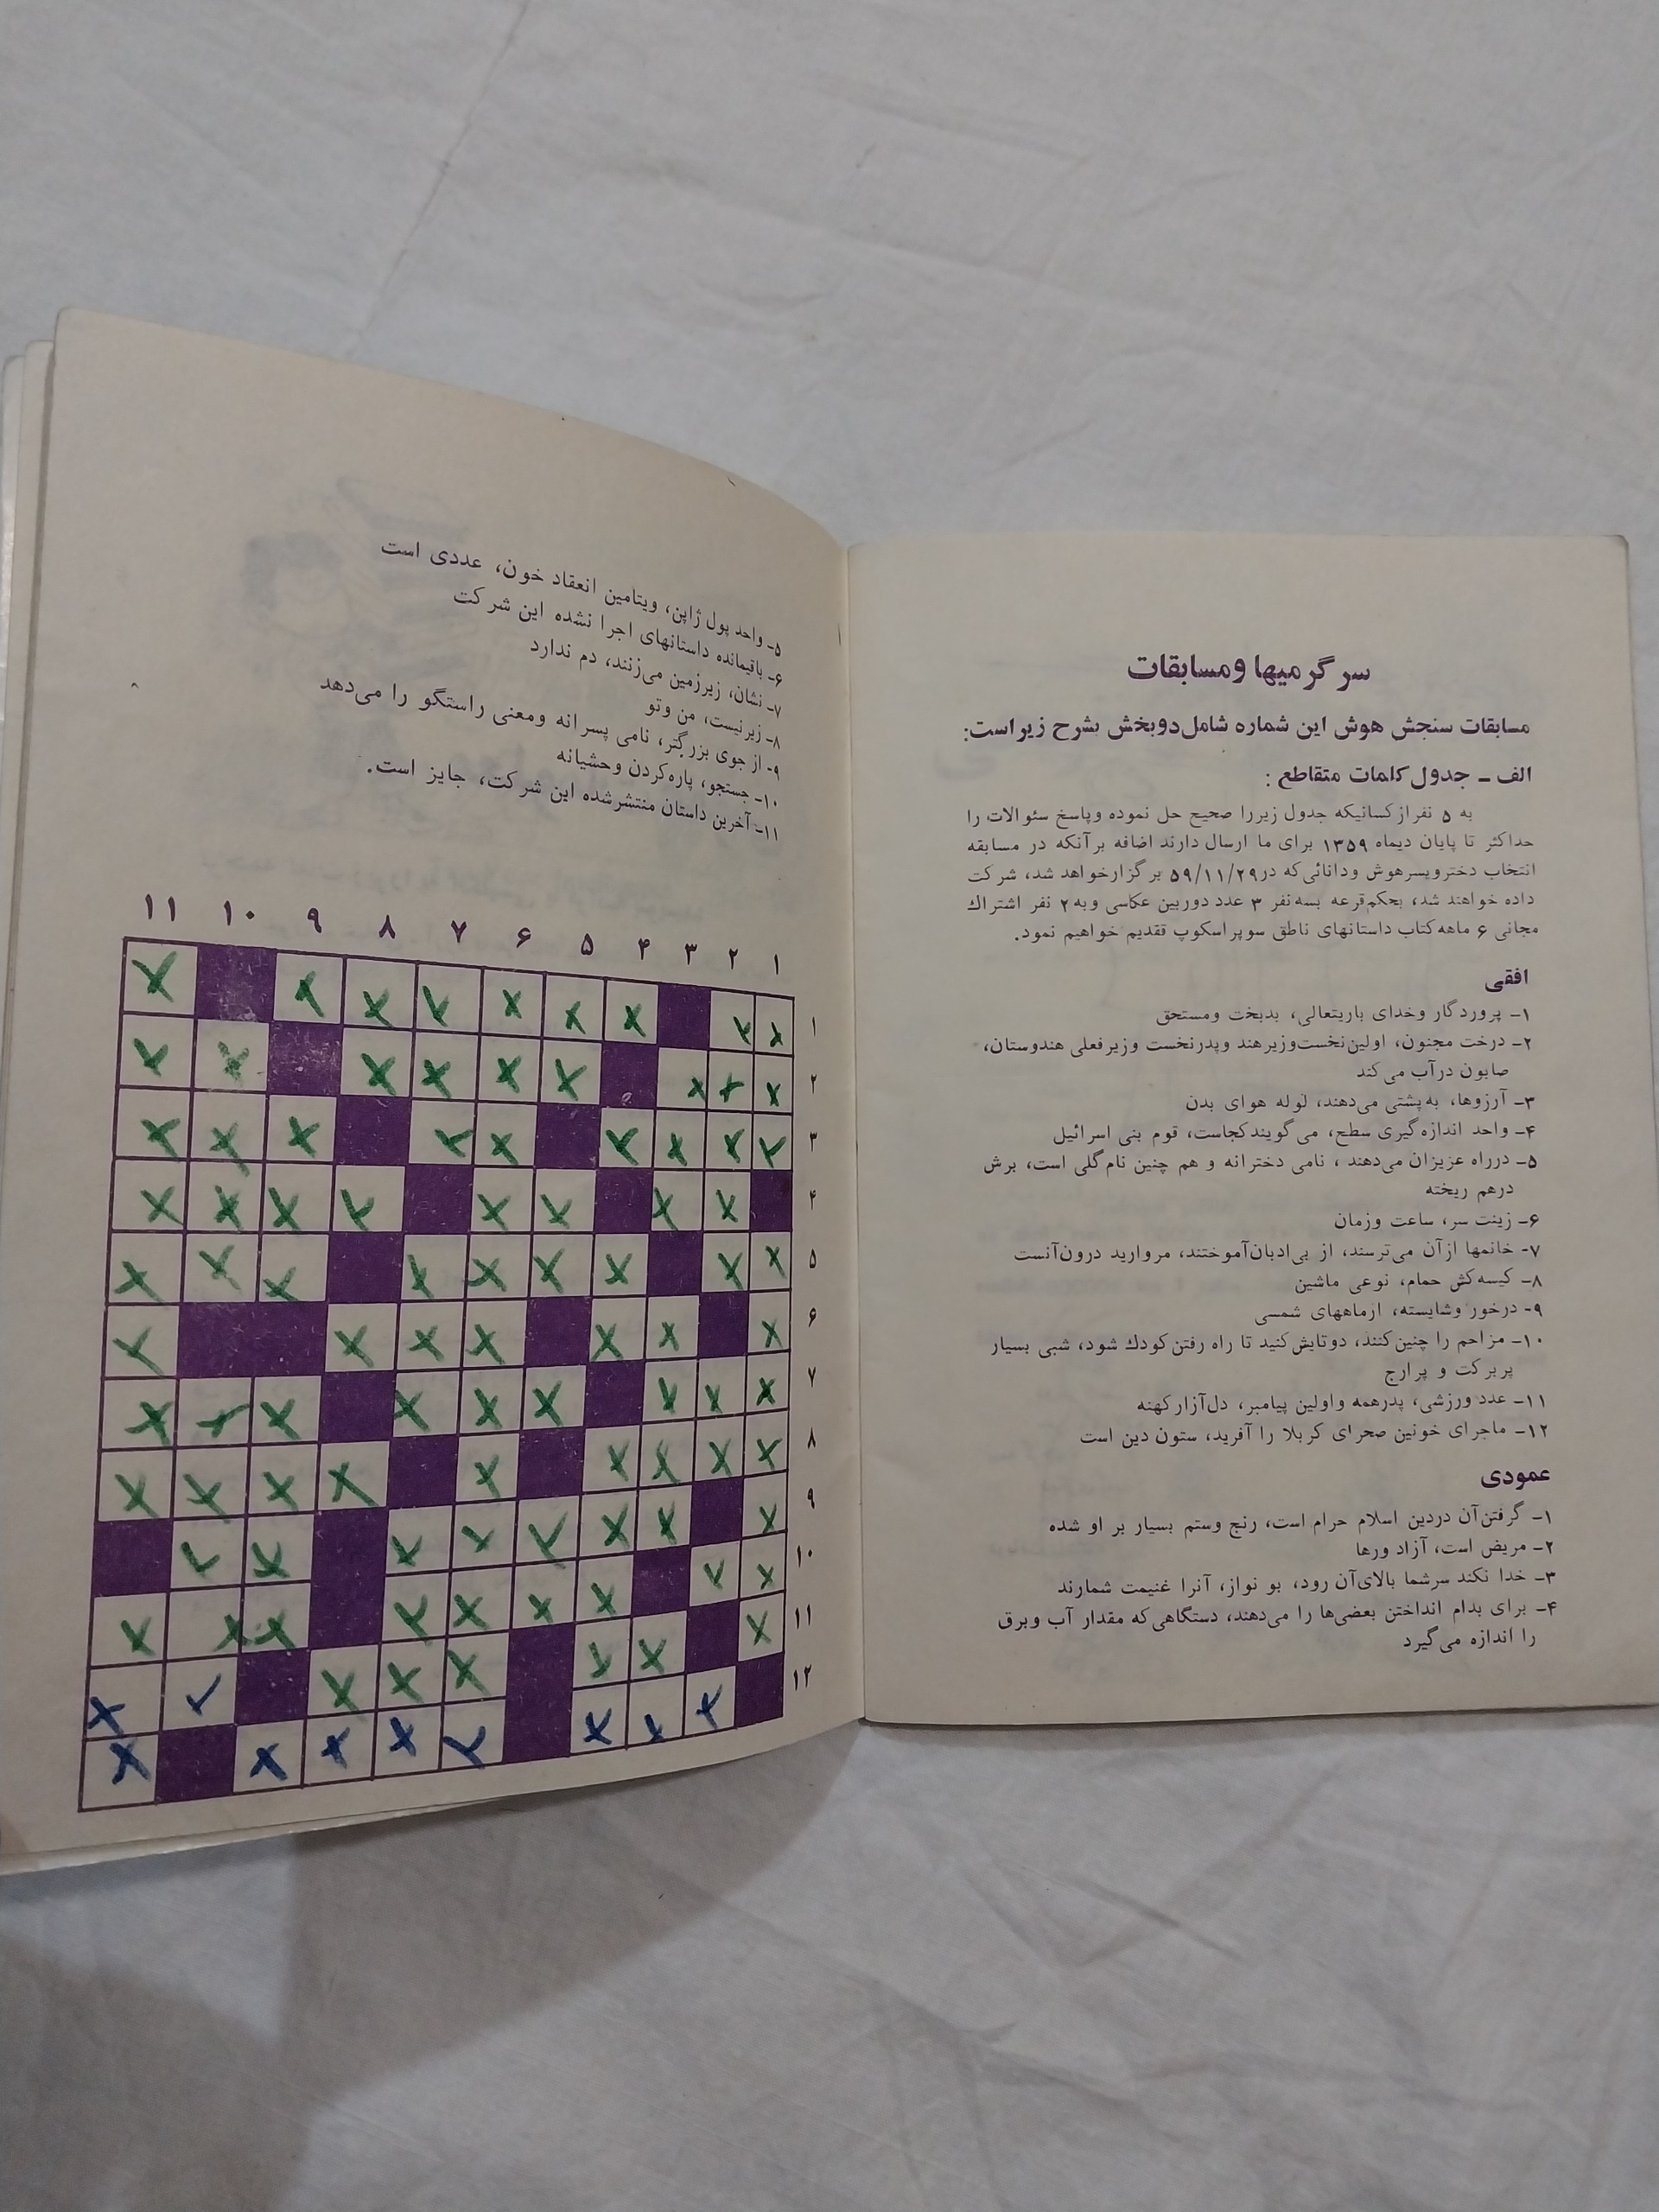 سرگرمیها و مسابقات
مسابقات سنجش هوش این شماره شامل دو بخش بشرح زیر است:
الف ـ جدول کلمات متقاطع :
به ۵ نفر از کسانیکه جدول زیر را صحیح حل نموده و پاسخ سئوالات را
حداکثر تا پایان دیماه ۱۳۵۹ برای ما ارسال دارند اضافه بر آنکه در مسابقه
انتخاب دختر و پسر هوش و دانائی که در ۵۹/۱۱/۲۹ برگزار خواهد شد، شرکت
داده خواهند شد، بحکم قرعه بسه نفر ۳ عدد دوربین عکاسی و به ۲ نفر اشتراک
مجانی ۶ ماهه کتاب داستانهای ناطق سوپراسکوپ تقدیم خواهیم نمود.
افقی
۱ـ پروردگار وخدای باریتعالی، بدبخت ومستحق
۲ـ درخت مجنون، اولین نخست وزیر هند وپدر نخست وزیر فعلی هندوستان،
صابون در آب می کند
۳ـ آرزوها، به پشتی می‌دهند، لوله هوای بدن
۴ـ واحد اندازه گیری سطح، می گویند کجاست، قوم بنی اسرائیل
۵ـ در راه عزیزان می‌دهند ، نامی دخترانه و هم چنین نام گلی است، برش
درهم ریخته
۶ـ زینت سر، ساعت وزمان
۷ـ خانمها از آن می‌ترسند، از بی‌ادبان آموختند، مروارید درون آنست
۸ـ کیسه کش حمام، نوعی ماشین
۹ـ درخور وشایسته، ازماههای شمسی
۱۰ـ مزاحم را چنین کنند، دوتایش کنید تا راه رفتن کودك شود، شبی بسیار
پر برکت و پرارج
۱۱ـ عدد ورزشی، پدرهمه واولین پیامبر، دل آزار کهنه
۱۲ـ ماجرای خونین صحرای کربلا را آفرید، ستون دین است
عمودی
۱ـ گرفتن آن دردین اسلام حرام است، رنج وستم بسیار بر او شده
۲ـ مریض است، آزاد ورها
۳ـ خدا نکند سرشما بالای آن رود، بو نواز، آنرا غنیمت شمارند
۴ـ برای بدام انداختن بعضی‌ها را می‌دهند، دستگاهی که مقدار آب وبرق
را اندازه می‌گیرد
۵ـ واحد پول ژاپن، ویتامین انعقاد خون، عددی است
۶ـ باقیمانده داستانهای اجرا نشده این شرکت
۷ـ نشان، زیرزمین می‌زنند، دم ندارد
۸ـ زیرنیست، من وتو
۹ـ از جوی بزرگتر، نامی پسرانه ومعنی راستگو را می‌دهد
۱۰ـ جستجو، پاره کردن وحشیانه
۱۱ـ آخرین داستان منتشرشده این شرکت، جایز است.
۱ ۲ ۳ ۴ ۵ ۶ ۷ ۸ ۹ ۱۰ ۱۱
۱
۲
۳
۴
۵
۶
۷
۸
۹
۱۰
۱۱
۱۲